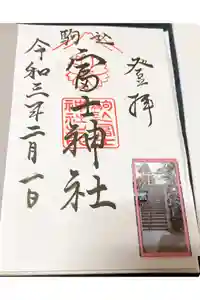 登拝
駒込
富士神社
令和三年二月一日